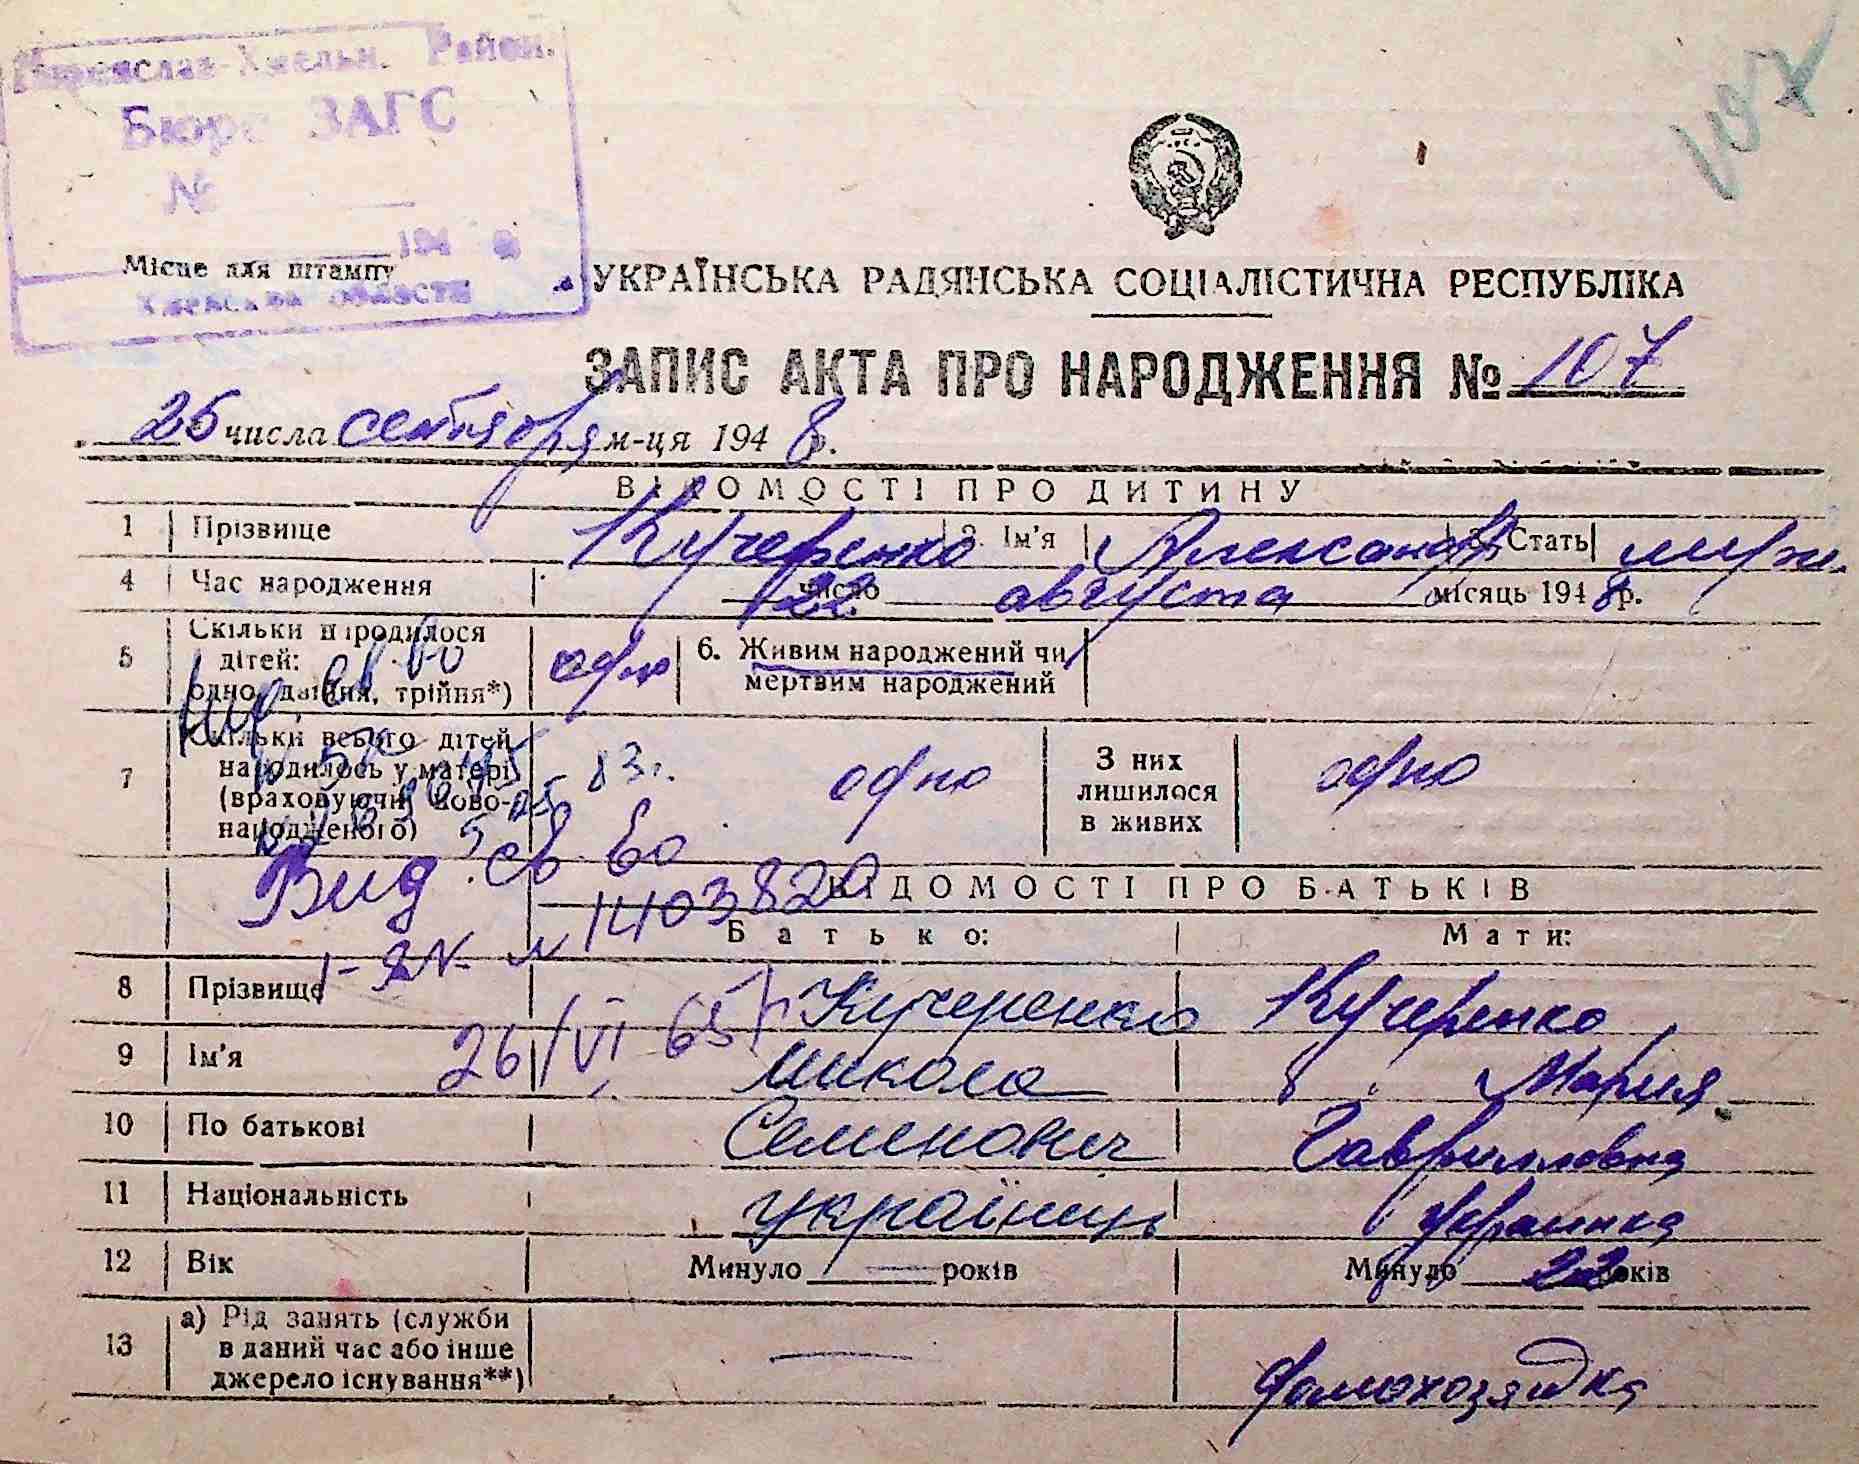 Переяслав-Хмельн. Район.
Бюро ЗАГС
№
194
Місце для штампу
Киевская области
107
УКРАЇНСЬКА РАДЯНСЬКА СОЦІАЛІСТИЧНА РЕСПУБЛІКА
ЗАПИС АКТА ПРО НАРОДЖЕННЯ № 107
25 числа сентября м-ця 1948 р.
ВІДОМОСТІ ПРО ДИТИНУ
1 Прізвище Кучеренко 2. Ім'я Александр 3. Стать муж.
4 Час народження 22 число августа місяць 1948 р.
5 Скільки народилося дітей: одно, двійня, трійня*) одно 6. Живим народжений чи мертвим народжений
7 Скільки всього дітей народилось у матері (враховуючи ново-народженого) одно З них лишилося в живих одно
83 г.
Вид. св во
ВІДОМОСТІ ПРО БАТЬКІВ
№ 1403820
Батько: Мати:
8 Прізвище Кучеренко Кучеренко
26/VI 65 г
9 Ім'я Микола Мария
10 По батькові Семенович Гавриловна
11 Національність українець украинка
12 Вік Минуло — років Минуло 22 років
13 а) Рід занять (служби в даний час або інше джерело існування**) — домохозяйка